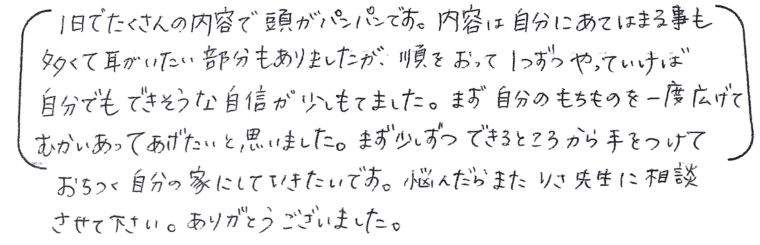 1日でたくさんの内容で頭がパンパンです。内容は自分にあてはまる事も
多くて耳がいたい部分もありましたが、順をおって1つずつやっていけば
自分でもできそうな自信が少しもてました。まず自分のもちものを一度広げて
むかいあってあげたいと思いました。まず少しずつできるところから手をつけて
おちつく自分の家にしていきたいです。悩んだらまたりさ先生に相談
させて下さい。ありがとうございました。